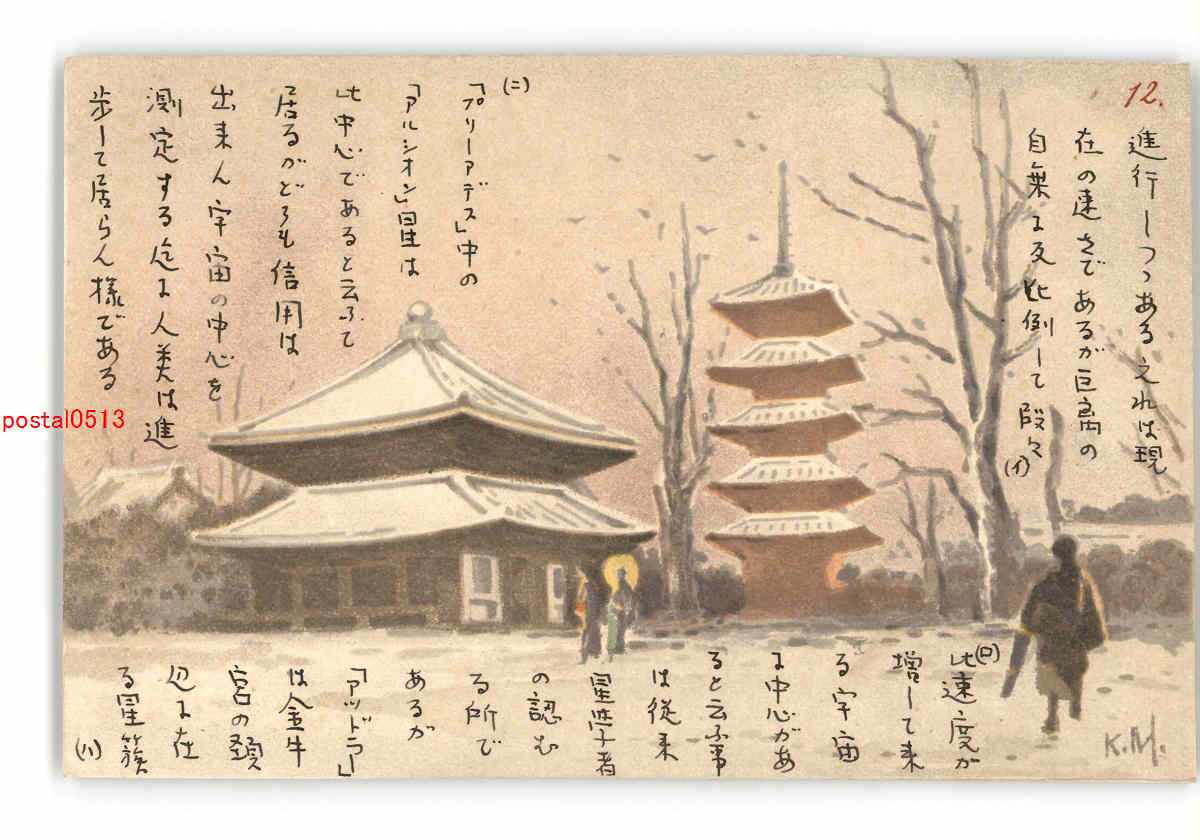 12.
進行しつつあるこれは現
在の速さであるが巨离の
自乗に反比例して段々
(イ)
(ロ)
此速度が
増して来
る宇宙
に中心があ
ると云ふ事
は従来
星学者
の認む
る所で
あるが
「アッドラー」
は金牛
宮の頚
辺に在
る星簇
(ハ)
(ニ)
「プリーアデス」中の
「アルシオン」星は
此中心であると云ふて
居るがどうも信用は
出来ん宇宙の中心を
測定する迄に人類は進
歩して居らん様である
K.M.
postal0513